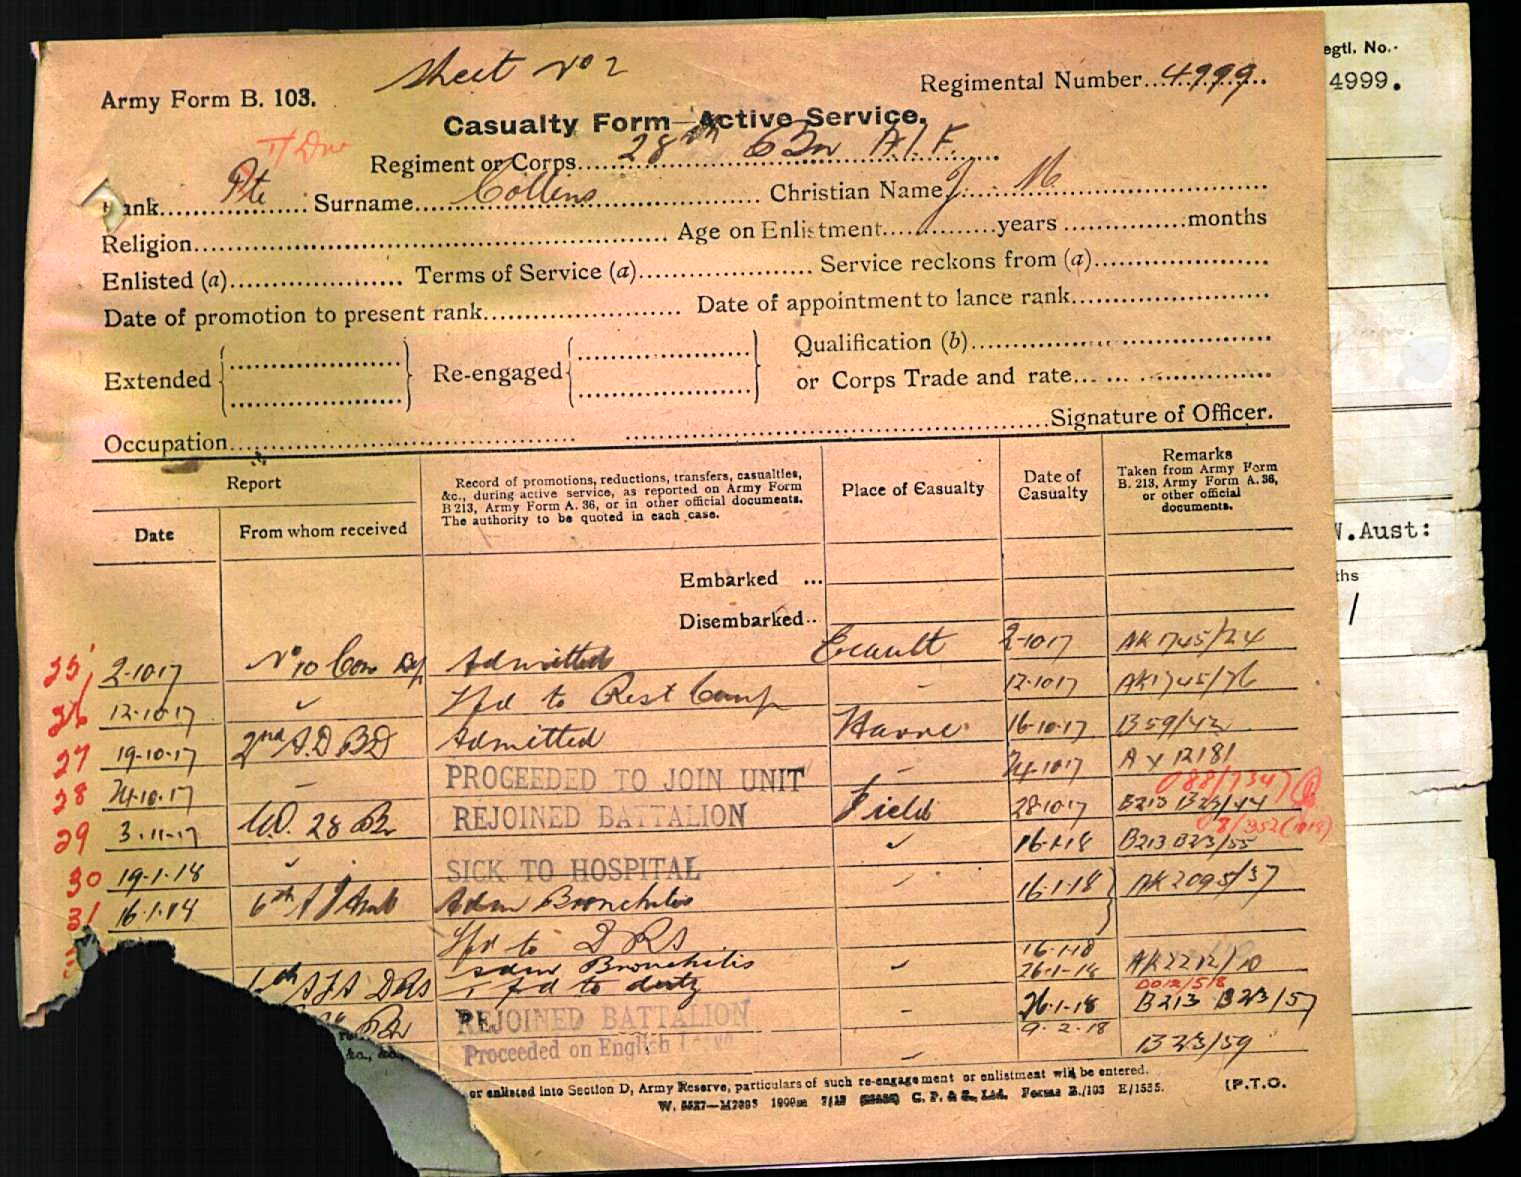 Sheet No 2
Army Form B. 103.
Regimental Number...4999...
egtl. No.
4999.
Casualty Form—Active Service.
Regiment or Corps...28th Bn A.I.F.
Rank...Pte...Surname...Collins...Christian Name J. M
Religion...Age on Enlistment...years...months
Enlisted (a)...Terms of Service (a)...Service reckons from (a)...
Date of promotion to present rank...Date of appointment to lance rank...
Extended
Re-engaged
Qualification (b)...
or Corps Trade and rate...
Occupation...
Signature of Officer.
Report
Record of promotions, reductions, transfers, casualties, &c., during active service, as reported on Army Form B 213, Army Form A. 36, or in other official documents. The authority to be quoted in each case.
Place of Casualty
Date of Casualty
Remarks
Taken from Army Form B. 213, Army Form A. 36, or other official documents.
Date
From whom received
W.Aust:
ths
Embarked ...
Disembarked..
25 2-10-17 No 10 Con Dep Admitted Ecault 2-10-17 AK1745/24
26 12-10-17 Tfd to Rest Camp - 12-10-17 AK1745/76
27 19-10-17 2nd A.D.B.D Admitted Havre 16-10-17 B59/42
28 24-10-17 - PROCEEDED TO JOIN UNIT - 24-10-17 A y 12181
29 3-11-17 C.O. 28 Bn REJOINED BATTALION Field 28-10-17 B213 B23/44
30 19-1-18 SICK TO HOSPITAL 16-1-18 B213 B23/55
31 16-1-18 6th A F Amb Adm Bronchitis 16-1-18 AK2095/37
Tfd to D R S 16-1-18
A F A DRS Adm Bronchitis 26-1-18 AK2212/10
Tfd to duty
Bn REJOINED BATTALION - 26-1-18 B213 B23/57
Proceeded on English Leave 9-2-18 B23/59
&c., &c.,
or enlisted into Section D, Army Reserve, particulars of such re-engagement or enlistment will be entered.
[P.T.O.
C. P. & S., Ltd. Forms B./103 E/1535.